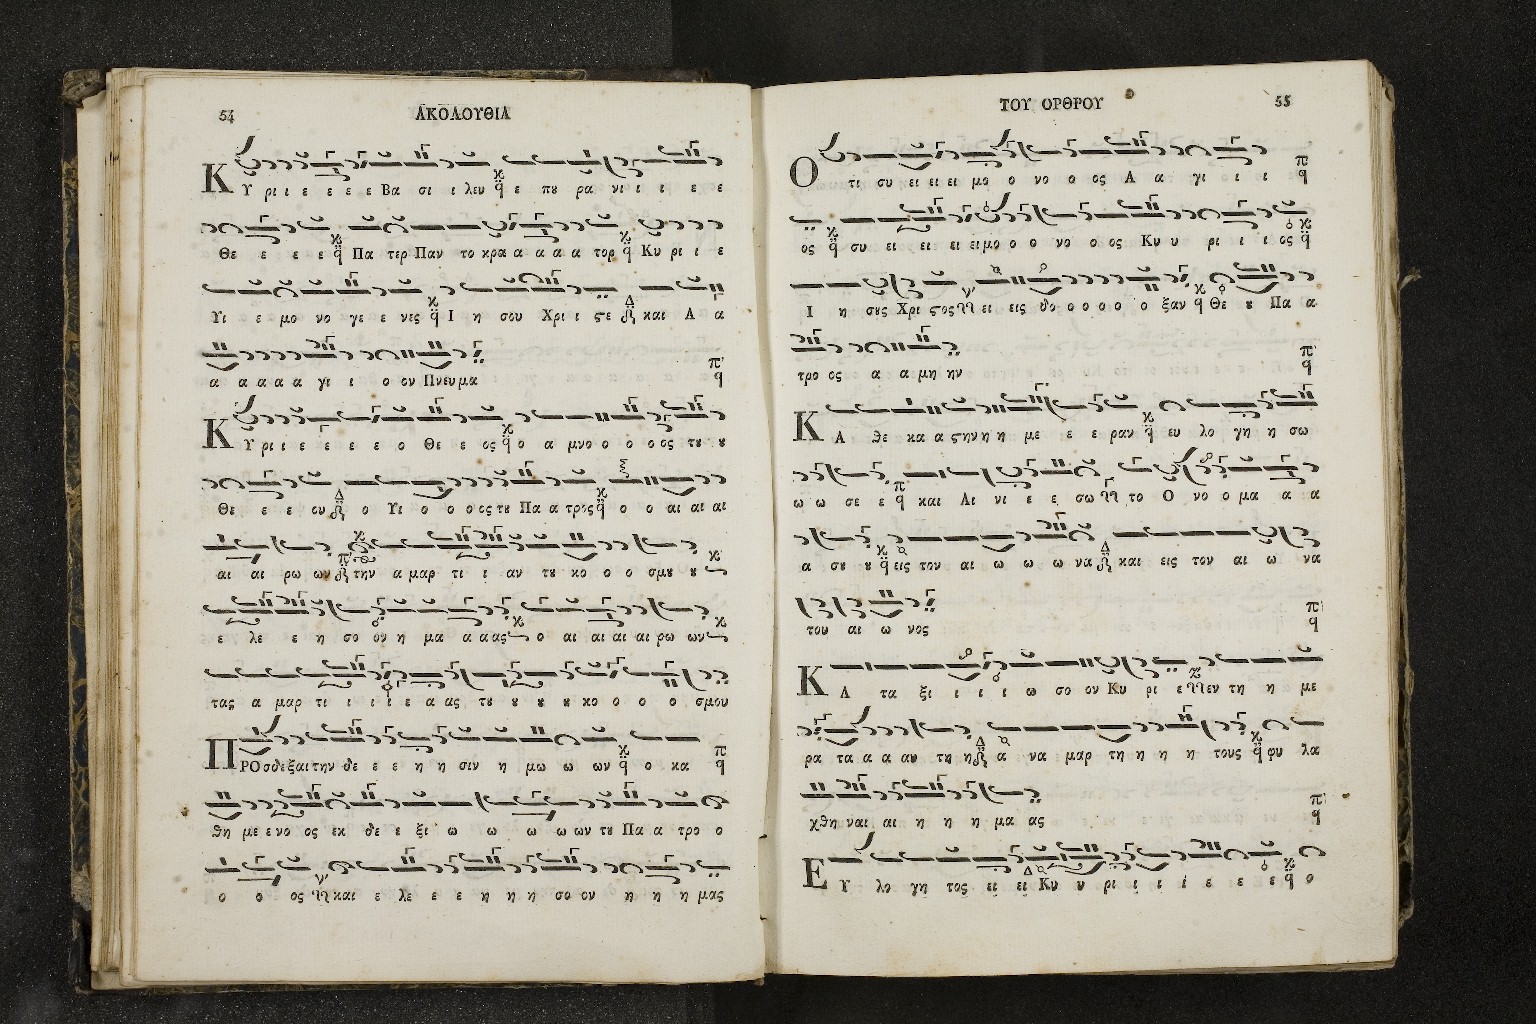 54 ΑΚΟΛΟΥΘΙΑ
Κ Υ ρι ι ε ε ε ε Βα σι ι λευ ε που ρα νι ι ι ε ε
Θε ε ε ε Πα τερ Παν το κρα α α α α τορ Κυ ρι ι ε
Υι ε μο νο γε ε νες Ι η σου Χρι ι ςε και Α α
α α α α α γι ι ο ον Πνευμα
Κ Υ ρι ι ε ε ε ε ο Θε ε ος ο α μνο ο ο ο ος τȣ ȣ
Θε ε ε ου ο Υι ο ο ο ος τȣ Πα α τρος ο ο αι αι αι
αι αι ρω ων την α μαρ τι ι αν τȣ κο ο ο σμȣ ȣ
ε λε ε η σο ον η μα α α ας ο αι αι αι αι ρω ων
τας α μαρ τι ι ι ι ε α ας τȣ ȣ ȣ ȣ κο ο ο ο σμου
Π ΡΟσδεξαι την δε ε ε η η σιν η μω ω ων ο κα
θη με ε νο ος εκ δε ε ξι ω ω ω ω ων τȣ Πα α τρο ο
ο ο ος και ε λε ε ε η η η σο ον η η η μας
ΤΟΥ ΟΡΘΡΟΥ 55
Ο τι συ ει ει ει μο ο νο ο ος Α α γι ι ι
ος συ ει ει ει ει μο ο ο νο ο ος Κυ υ ρι ι ι ος
Ι η σȣς Χρι ςος ει εις δο ο ο ο ο ο ξαν Θε ȣ Πα α
τρο ος α α μη ην
Κ Α θε κα α ςην η η με ε ε ραν ευ λο γη η σω
ω ω σε ε και Αι νι ε ε σω το Ο νο ο μα α α
α σȣ ȣ εις τον αι ω ω ω να και εις τον αι ω να
του αι ω νος
Κ Α τα ξι ι ι ι ω σο ον Κυ ρι ε εν τη η με
ρα τα α α αυ τη η α να μαρ τη η η η τους φυ λα
χθη ναι αι η η η μα ας
Ε Υ λο γη τος ει ει Κυ υ ρι ι ι ι ε ε ε ε ο